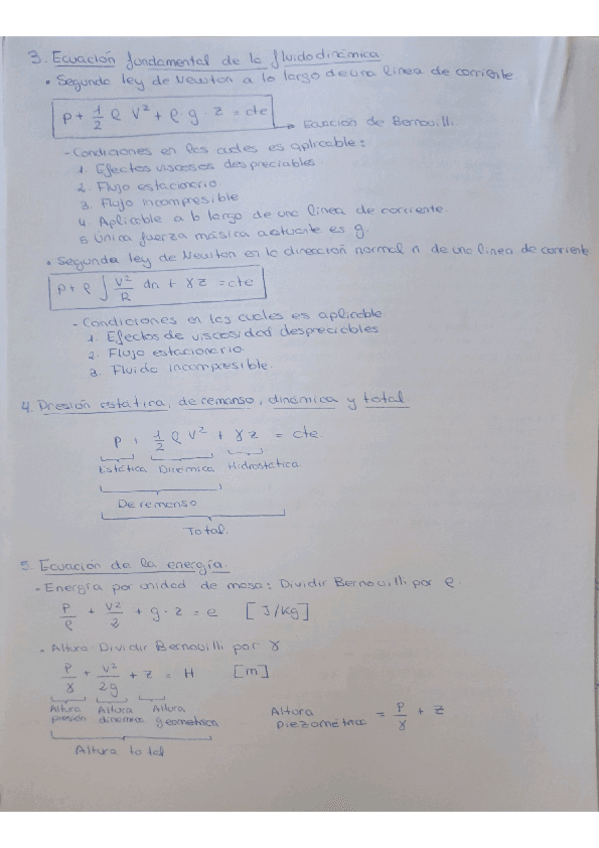 3. Ecuación fundamental de la fluidodinámica.
• Segunda ley de Newton a lo largo de una linea de corriente
P + 1/2 ρ V² + ρ · g · z = cte → Ecuación de Bernouilli.
- Condiciones en las cuales es aplicable:
1. Efectos viscosos despreciables.
2. Flujo estacionario.
3. Flujo incompresible
4. Aplicable a lo largo de una linea de corriente.
5. Única fuerza másica actuante es g.
• Segunda ley de Newton en la dirección normal n de una linea de corriente
P + ρ ∫ V²/R dn + γ z = cte
- Condiciones en las cuales es aplicable
1. Efectos de viscosidad despreciables
2. Flujo estacionario.
3. Fluido incompresible.
4. Presión estática, de remanso, dinámica y total
P + 1/2 ρ V² + γ z = cte.
Estática Dinámica Hidrostática
De remanso
Total.
5. Ecuación de la energía.
- Energía por unidad de masa: Dividir Bernouilli por ρ.
P/ρ + V²/2 + g · z = e [J/Kg]
- Altura: Dividir Bernouilli por γ
P/γ + V²/2g + z = H [m]
Altura presión Altura dinámica Altura geométrica
Altura piezométrica = P/γ + z
Altura total